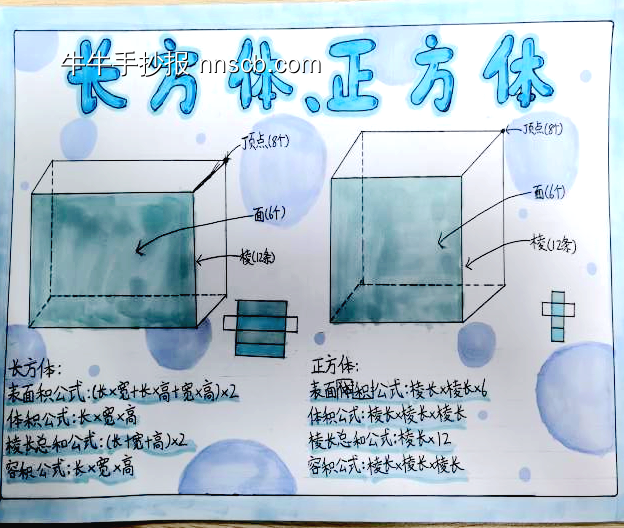 牛牛手抄报 nnscb.com
长方体、正方体
顶点(8个)
面(6个)
棱(12条)
顶点(8个)
面(6个)
棱(12条)
长方体:
表面积公式:(长×宽+长×高+宽×高)×2
体积公式:长×宽×高
棱长总和公式:(长+宽+高)×2
容积公式:长×宽×高
正方体:
表面积公式:棱长×棱长×6
体积公式:棱长×棱长×棱长
棱长总和公式:棱长×12
容积公式:棱长×棱长×棱长